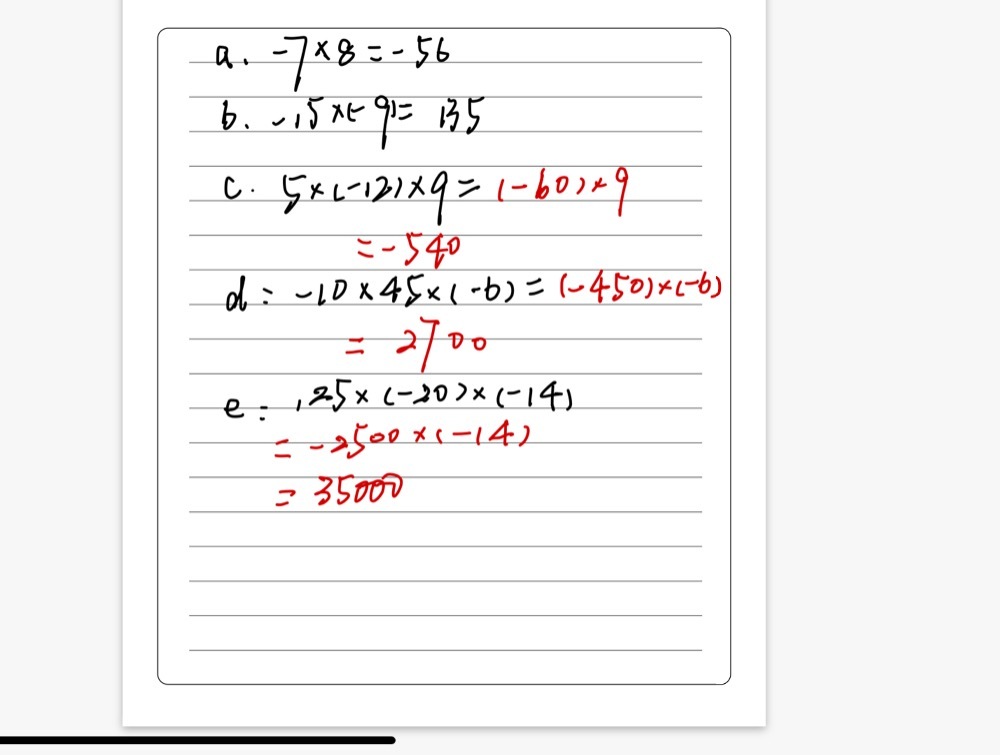 a. -7×8=-56
b. -15×(-9)= 135
c. 5×(-12)×9=(-60)×9
=-540
d: -10×45×(-6)=(-450)×(-6)
= 2700
e: 125×(-20)×(-14)
= -2500×(-14)
= 35000